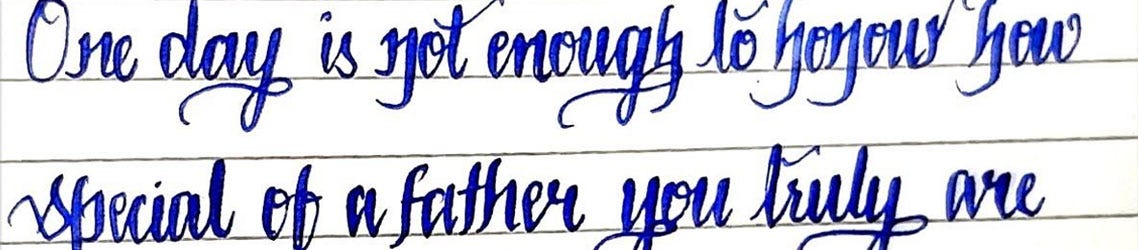 One day is not enough to honour how
special of a father you truly are